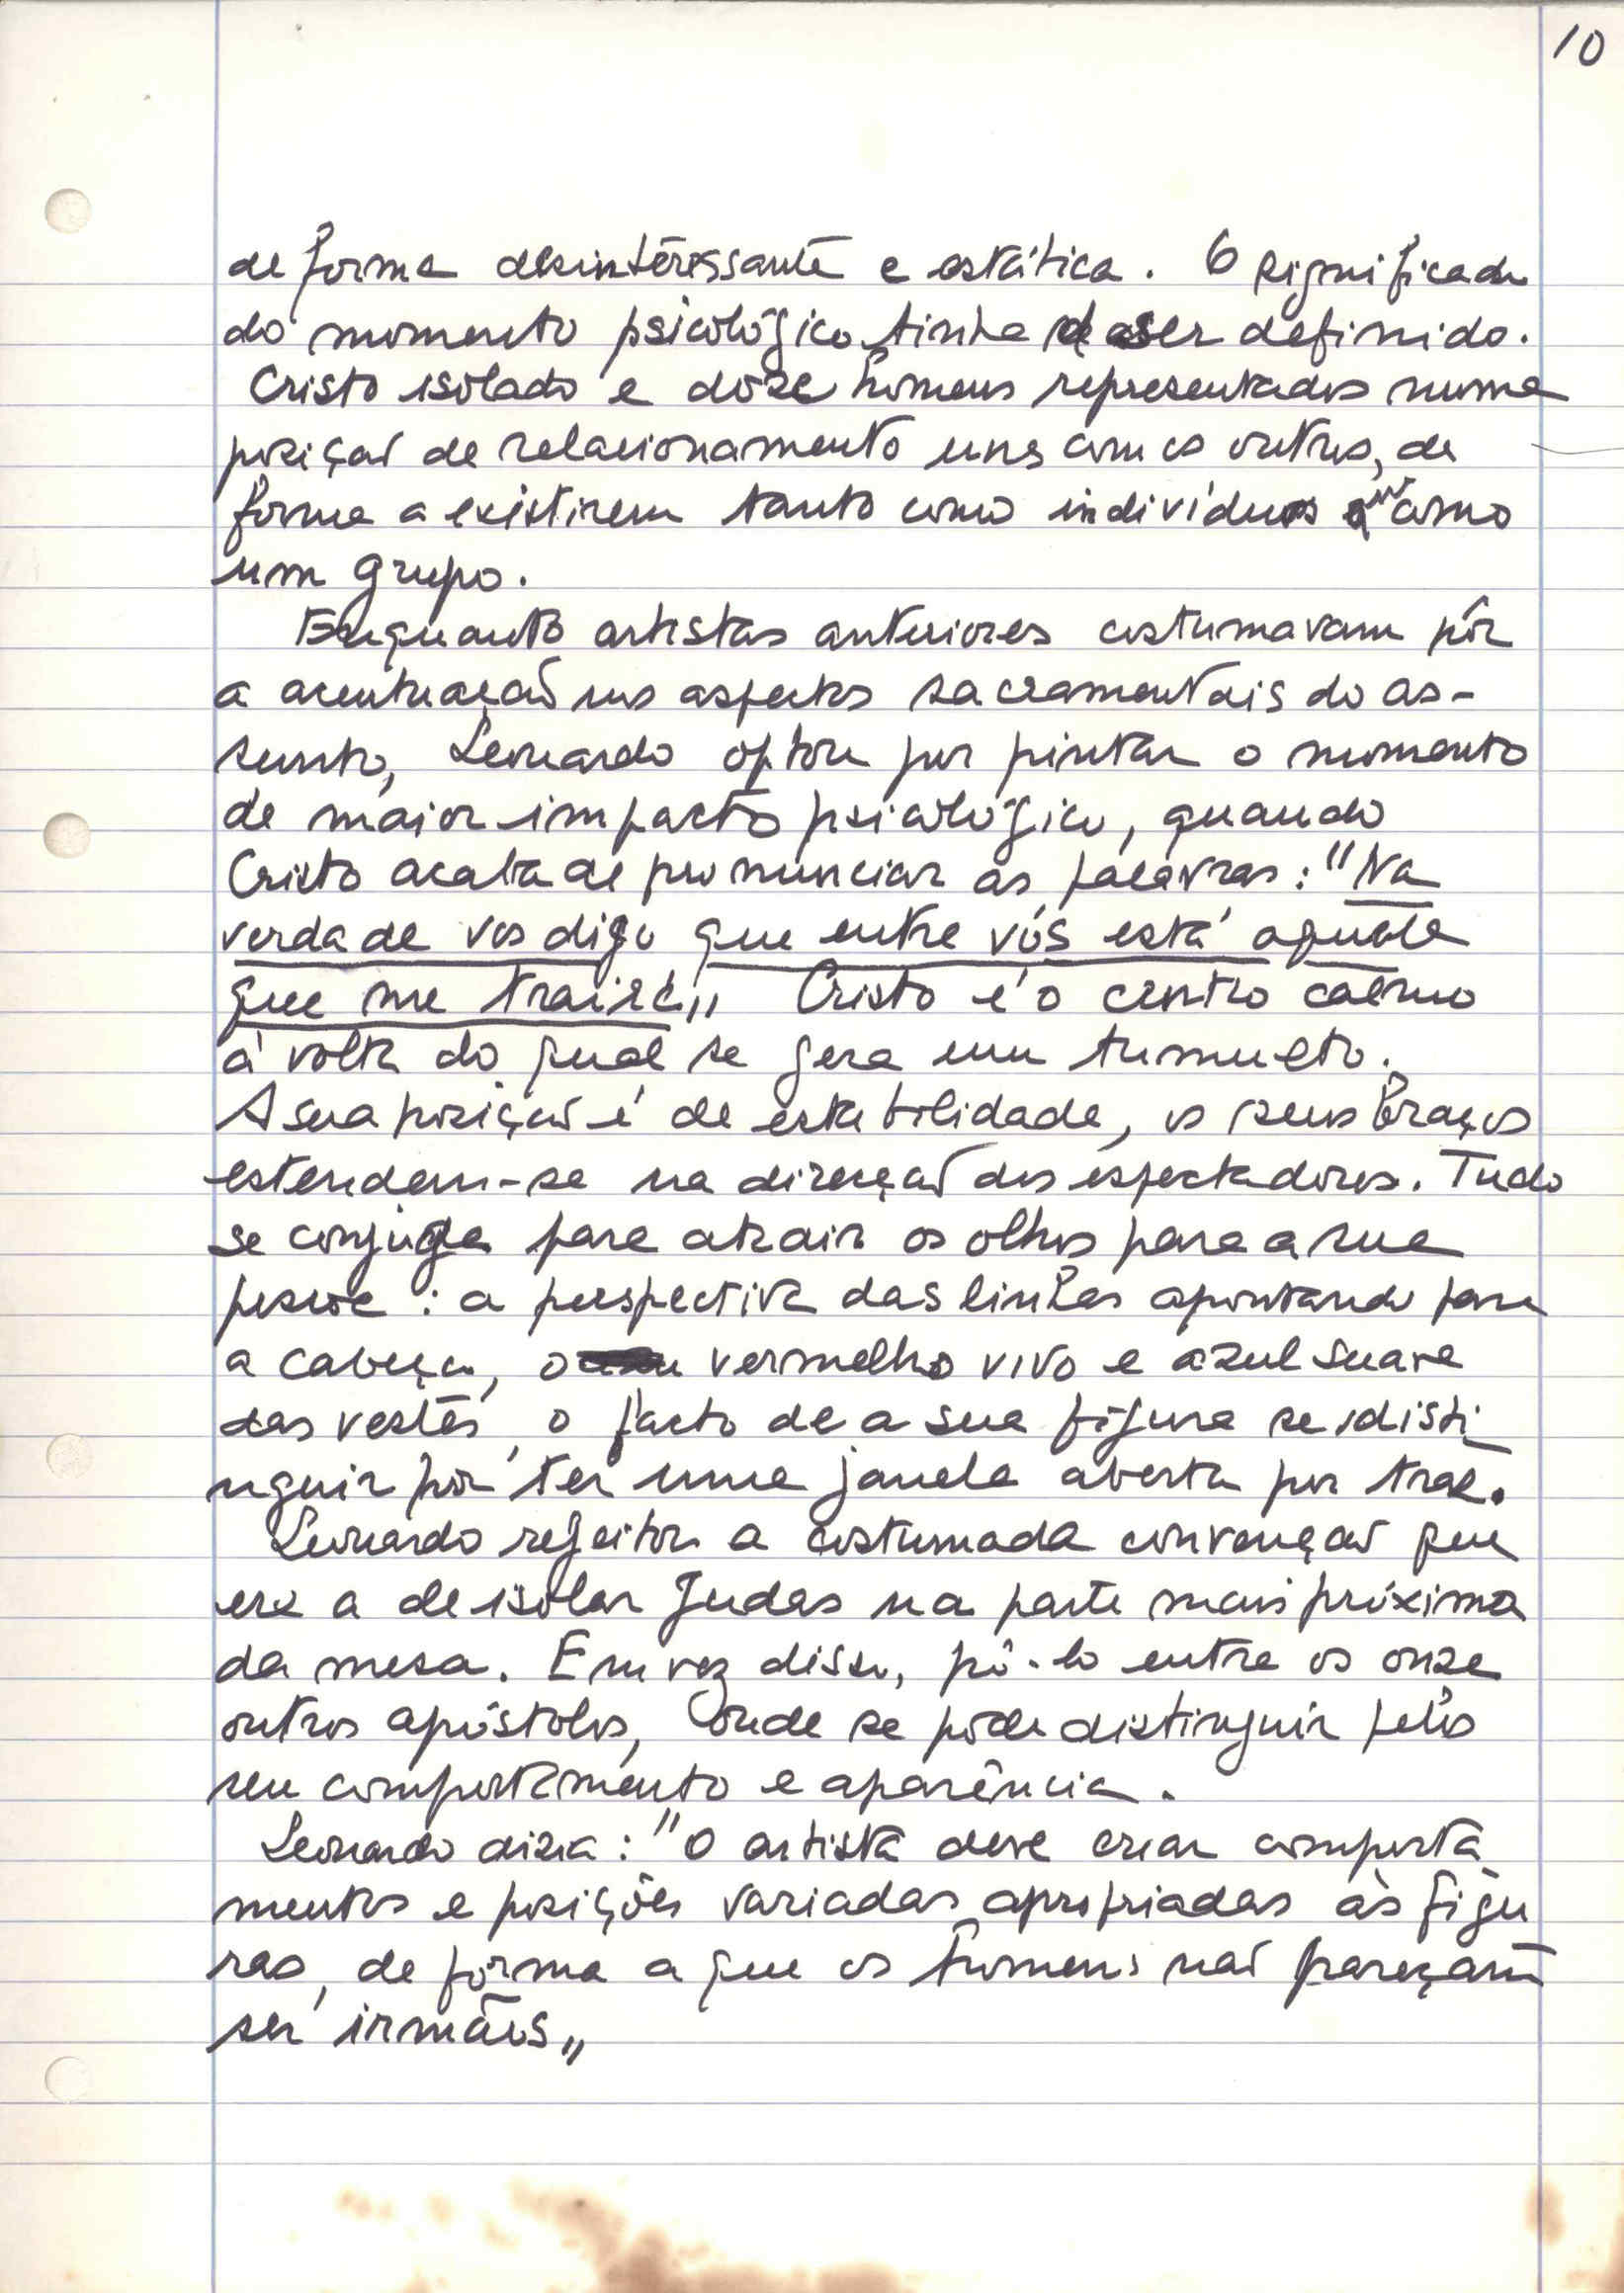 10
de forma desinteressante e estática. O significado
do momento psicológico tinha de ser definido.
Cristo isolado e doze homens representados numa
posição de relacionamento uns com os outros, de
forma a existirem tanto como indivíduos como
um grupo.
Enquanto artistas anteriores costumavam pôr
a acentuação nos aspectos sacramentais do as-
sunto, Leonardo optou por pintar o momento
de maior impacto psicológico, quando
Cristo acaba de pronunciar as palavras: "Na
verdade vos digo que entre vós está aquele
que me trairá" Cristo é o centro calmo
à volta do qual se gera um tumulto.
A sua posição é de estabilidade, os seus braços
estendem-se na direcção dos espectadores. Tudo
se conjuga para atrair os olhos para a sua
pessoa: a perspectiva das linhas apontando para
a cabeça, o vermelho vivo e azul suave
das vestes, o facto de a sua figura se disti
nguir por ter uma janela aberta por trás.
Leonardo rejeitou a costumada convenção que
era a de isolar Judas na parte mais próxima
da mesa. Em vez disso, pô-lo entre os onze
outros apóstolos, onde se pode distinguir pelo
seu comportamento e aparência.
Leonardo dizia: "O artista deve criar comporta
mentos e posições variadas apropriadas às figu
ras, de forma a que os homens não pareçam
ser irmãos"